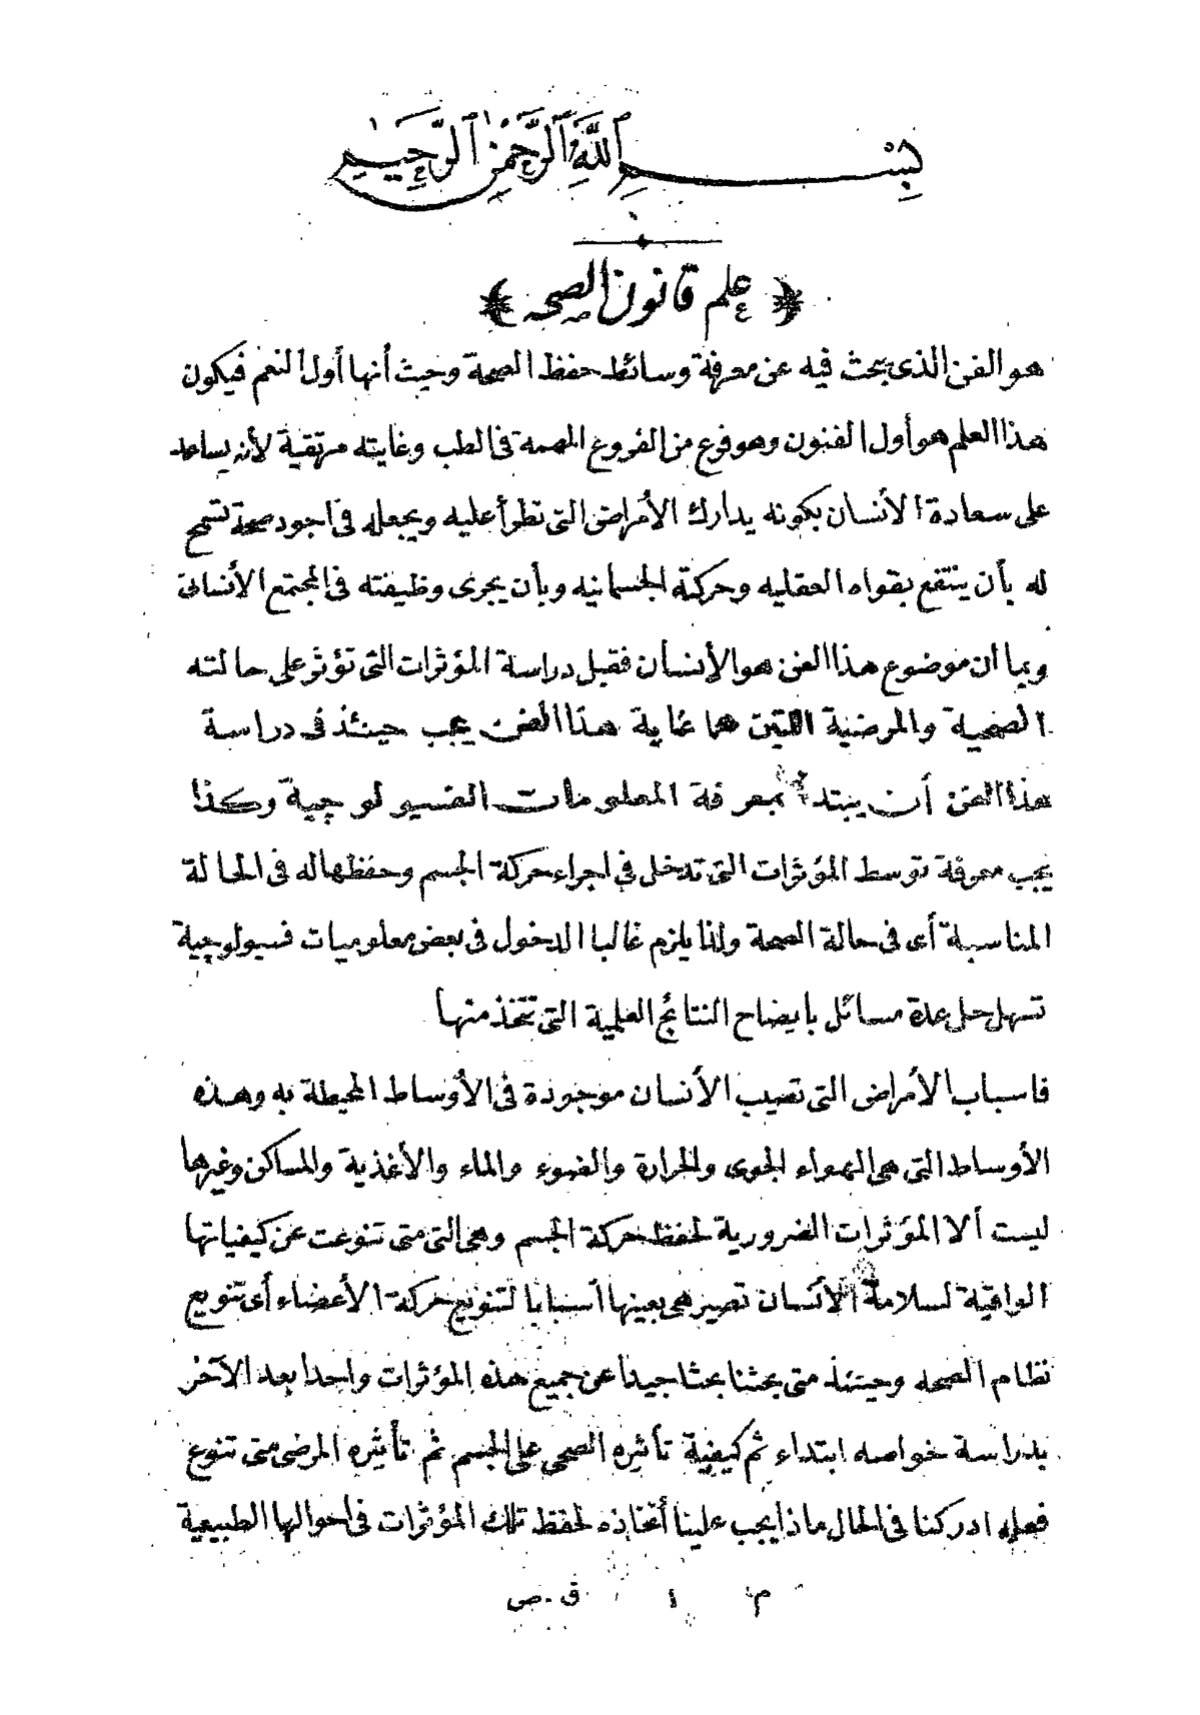 بِسْمِ ٱللَّهِ ٱلرَّحْمٰنِ ٱلرَّحِيمِ
﴿ علم قانون الصحه ﴾
هو الفن الذى يبحث فيه عن معرفة وسائط حفظ الصحة وحيث أنها أول النعم فيكون
هذا العلم هو أول الفنون وهو فرع من الفروع المهمة فى الطب وغايته مرتقية لأنه يساعد
على سعادة الأنسان بكونه يدارك الأمراض التى تطرأ عليه ويجعله فى اجود صحة تسمح
له بأن ينتفع بقواه العقليه وحركته الجسمانيه وبأن يجرى وظيفته فى المجتمع الأنسانى
وبما ان موضوع هذا الفن هو الأنسان فقبل دراسة المؤثرات التى تؤثر على حالته
الصحية والمرضية اللتين هما غاية هذا الفن يجب حينئذ فى دراسة
هذا الفن أن يبتدأ بمعرفة المعلومات الفسيولوجية وكذا
يجب معرفة توسط المؤثرات التى تدخل فى اجراء حركة الجسم وحفظها له فى الحالة
المناسبة أى فى حالة الصحة ولذا يلزم غالبا الدخول فى بعض معلوميات فسيولوجية
تسهل حل عدة مسائل بايضاح النتائج العلمية التى تتخذ منها
فاسباب الأمراض التى تصيب الأنسان موجودة فى الأوساط المحيطة به وهذه
الأوساط التى هى الهواء الجوى والحرارة والضوء والماء والأغذية والمساكن وغيرها
ليست ألا المؤثرات الضرورية لحفظ حركة الجسم وهى التى متى تنوعت عن كيفياتها
الواقية لسلامة الأنسان تصير هى بعينها أسبابا لتنويع حركة الأعضاء أى تنويع
نظام الصحه وحينئذ متى بحثنا بحثا جيدا عن جميع هذه المؤثرات واحدا بعد الآخر
بدراسة خواصه ابتداء ثم كيفية تأثيره الصحى على الجسم ثم تأثيره المرضى متى تنوع
فعله ادركنا فى الحال ماذا يجب علينا أتخاذه لحفظ تلك المؤثرات فى احوالها الطبيعية
م ١ ق. ص